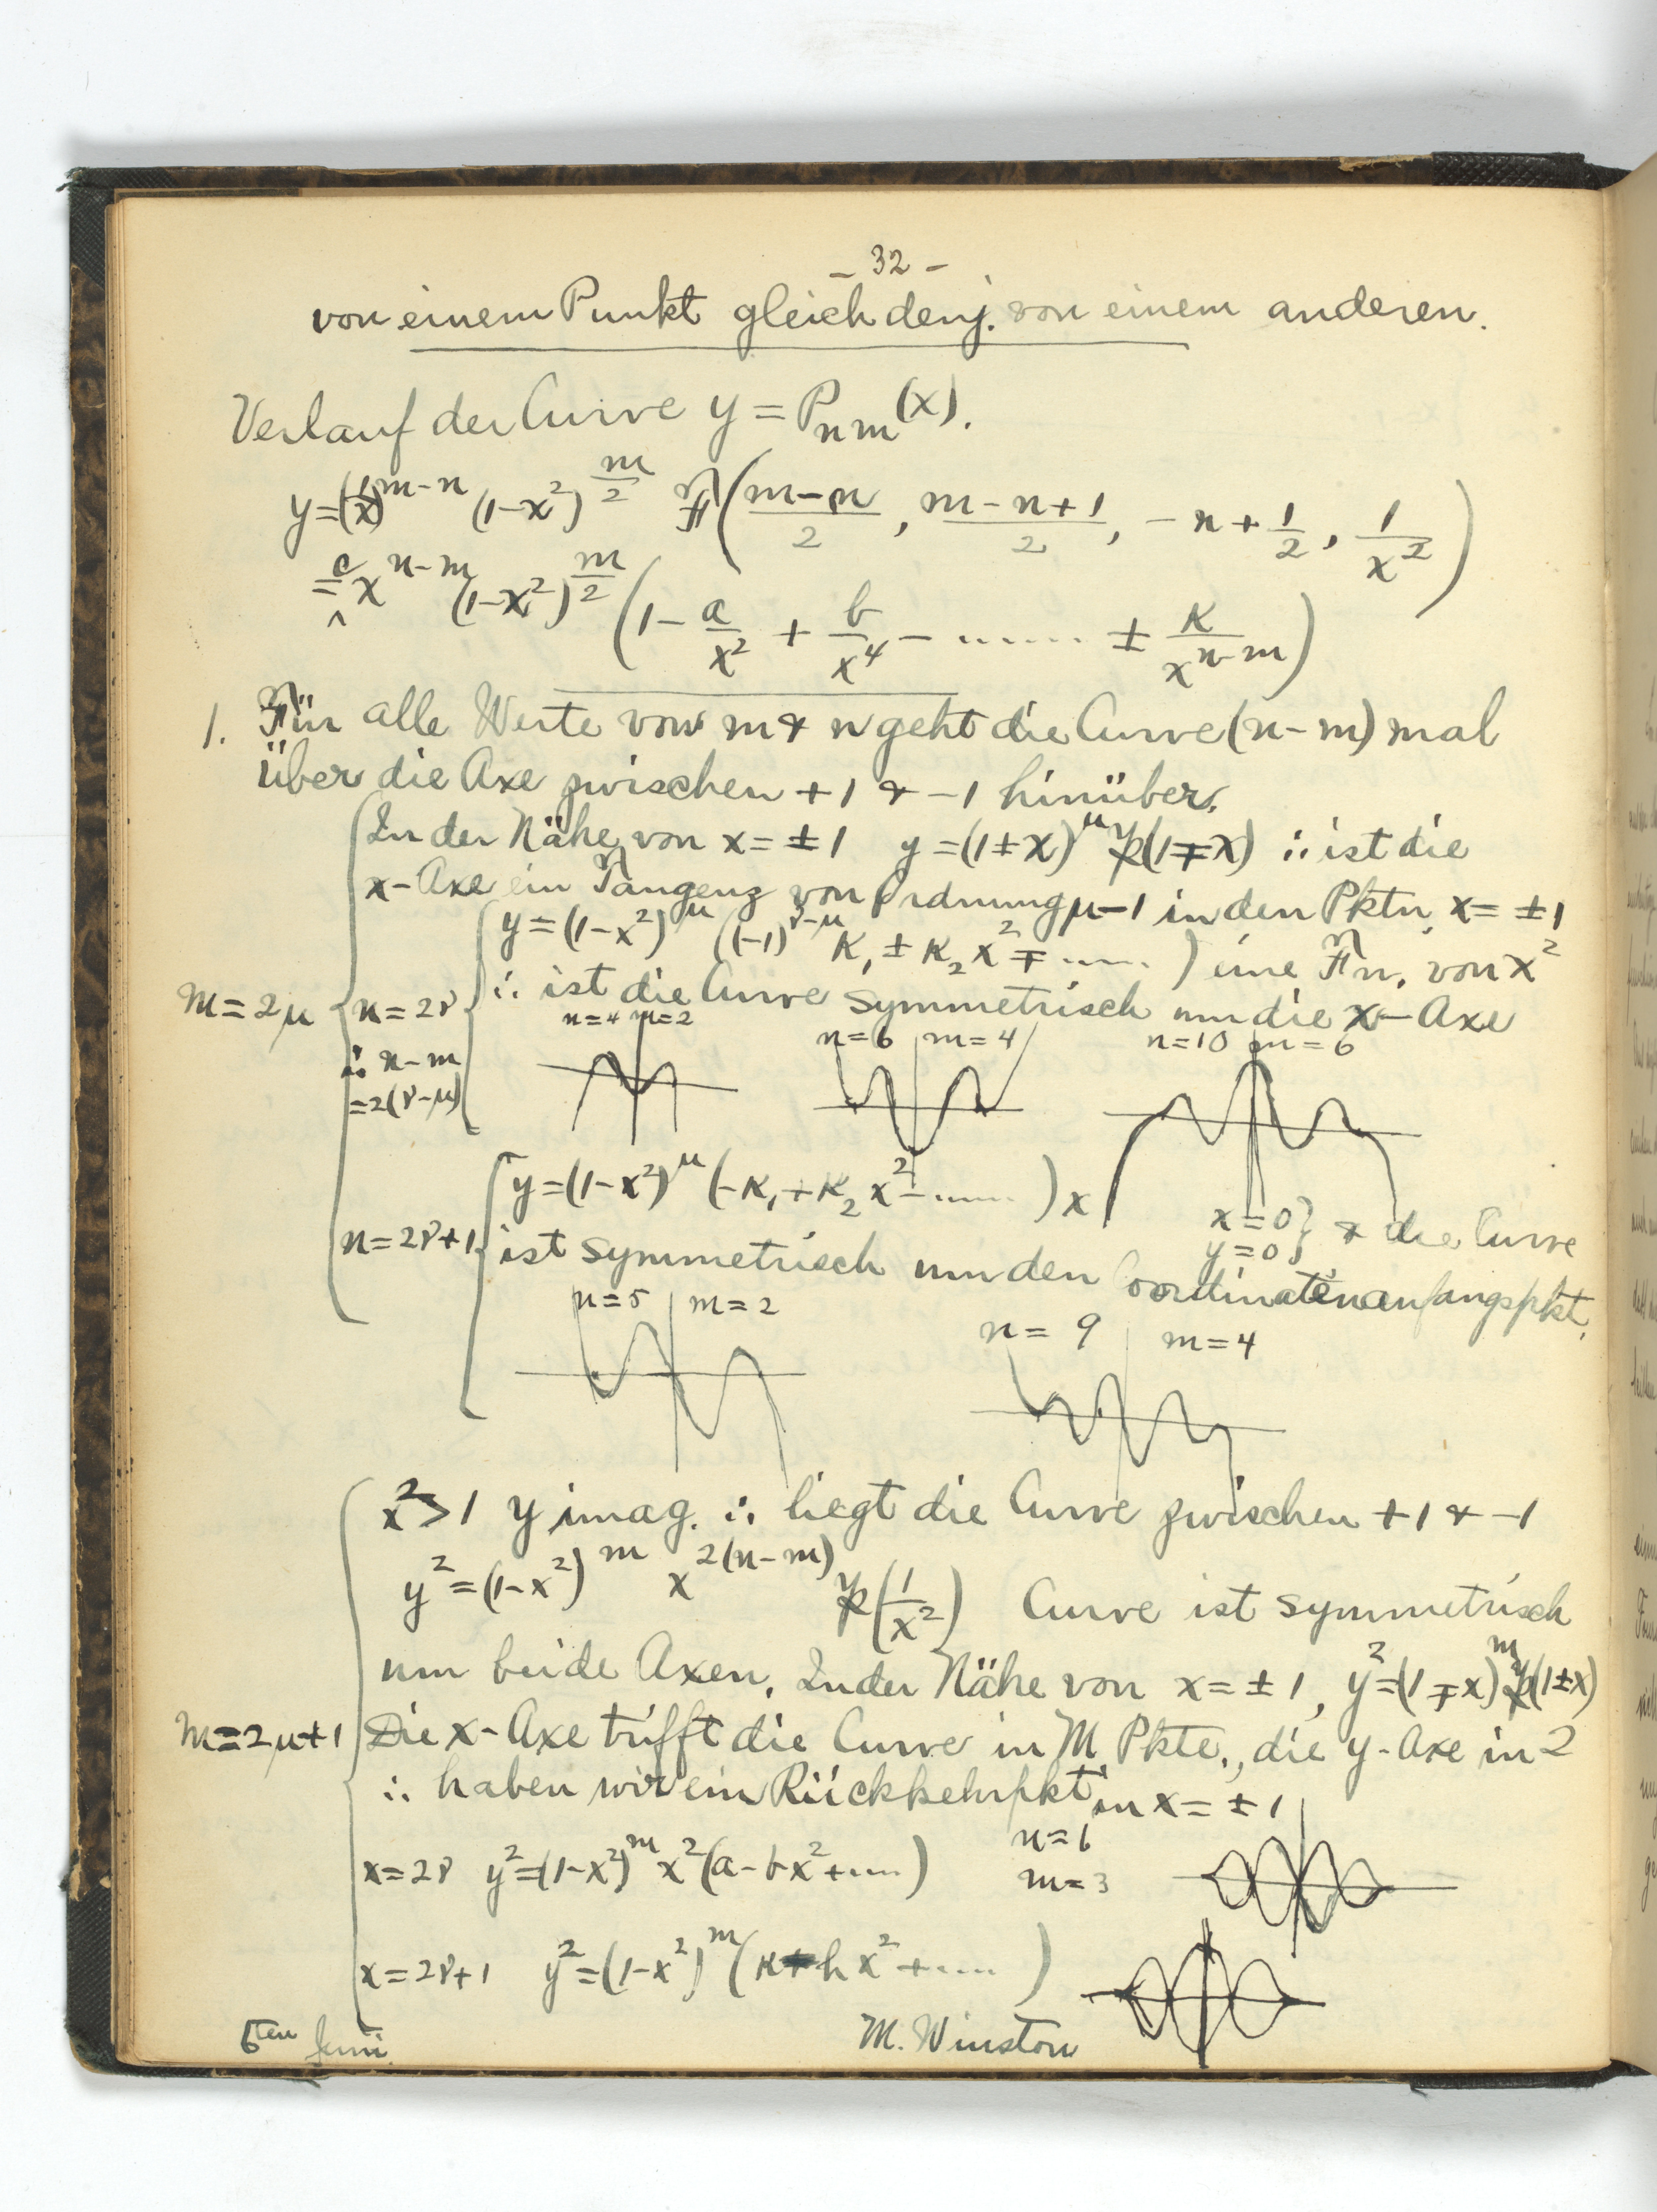 - 32 -
von einem Punkt gleich denj. von einem anderen.
Verlauf der Curve y = P_{nm}(x).
y = (1/x)^{m-n} (1-x²)^{m/2} F((m-n)/2, (m-n+1)/2, -n+1/2, 1/x²)
= c x^{n-m} (1-x²)^{m/2} (1 - a/x² + b/x⁴ - ...... ± K/x^{n-m})
1. Für alle Werte von m & n geht die Curve (n-m) mal
über die Axe zwischen +1 & -1 hinüber.
In der Nähe von x = ±1 y = (1±x)^μ p(1∓x) ∴ ist die
x-Axe ein Tangenz von Ordnung μ-1 in den Pktn, x = ±1
y = (1-x²)^μ ((-1)^{ν-μ} K₁ ± K₂x² ∓ .....) eine Fn. von x²
m = 2μ
n = 2ν
∴ ist die Curve symmetrisch um die x-Axe
∴ n-m
= 2(ν-μ)
n=4 m=2
n=6 m=4
n=10 m=6
y = (1-x²)^μ (-K₁ + K₂x² - ......) x
x=0 } & die Curve
y=0 }
n = 2ν+1
ist symmetrisch um den Coordinatenanfangspkt.
n=5 m=2
n=9 m=4
x² > 1 y imag. ∴ liegt die Curve zwischen +1 & -1
y² = (1-x²)^m x^{2(n-m)} p(1/x²) Curve ist symmetrisch
um beide Axen. In der Nähe von x = ±1, y² = (1∓x)^m p(1±x)
m = 2μ+1
Die x-Axe trifft die Curve in M Pkte., die y-Axe in 2
∴ haben wir ein Rückkehrpkt in x = ±1
x = 2ν y² = (1-x²)^m x² (a - bx² + ....)
n=6
m=3
x = 2ν+1 y² = (1-x²)^m (K + h x² + ....)
6ten Juni.
M. Winston